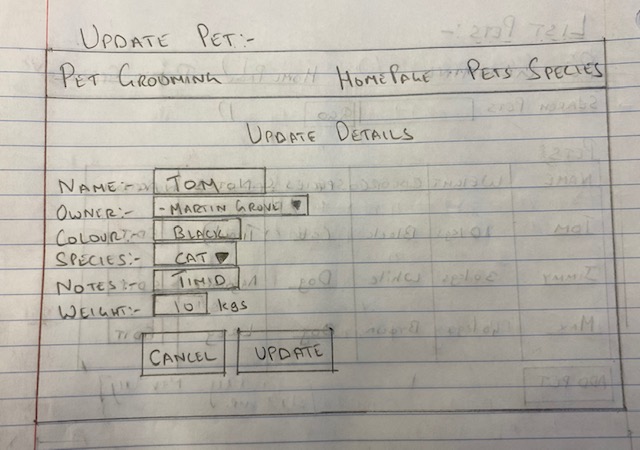 UPDATE PET:-
PET GROOMING HOMEPAGE PETS SPECIES
UPDATE DETAILS
NAME:- TOM
OWNER:- - MARTIN
COLOUR:- BLACK
SPECIES:- CAT
NOTES:- TIMID
WEIGHT:- 10 kgs
CANCEL UPDATE